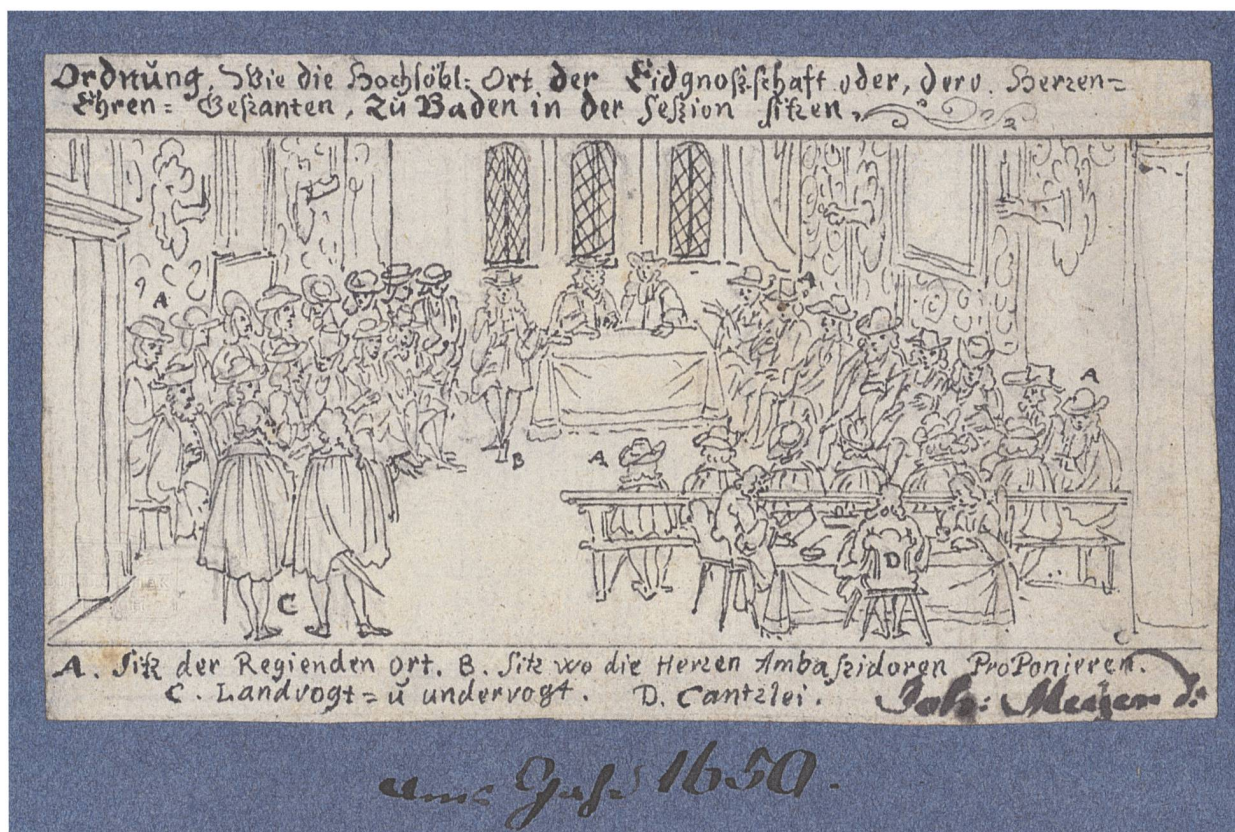 Ordnung, Wie die Hochlöbl: Ort der Eidgnoßschaft oder, dero. Herren=
Ehren= Gesanten, Zu Baden in der Seßion sitzen.
A
A
A
A
B
C
D
A. Sitz der Regienden ort. B. Sitz wo die Herren Ambaßidoren ProPonieren.
C. Landvogt= ū undervogt. D. Cantzlei.
Joh: Meyer d:
Jahr 1650.